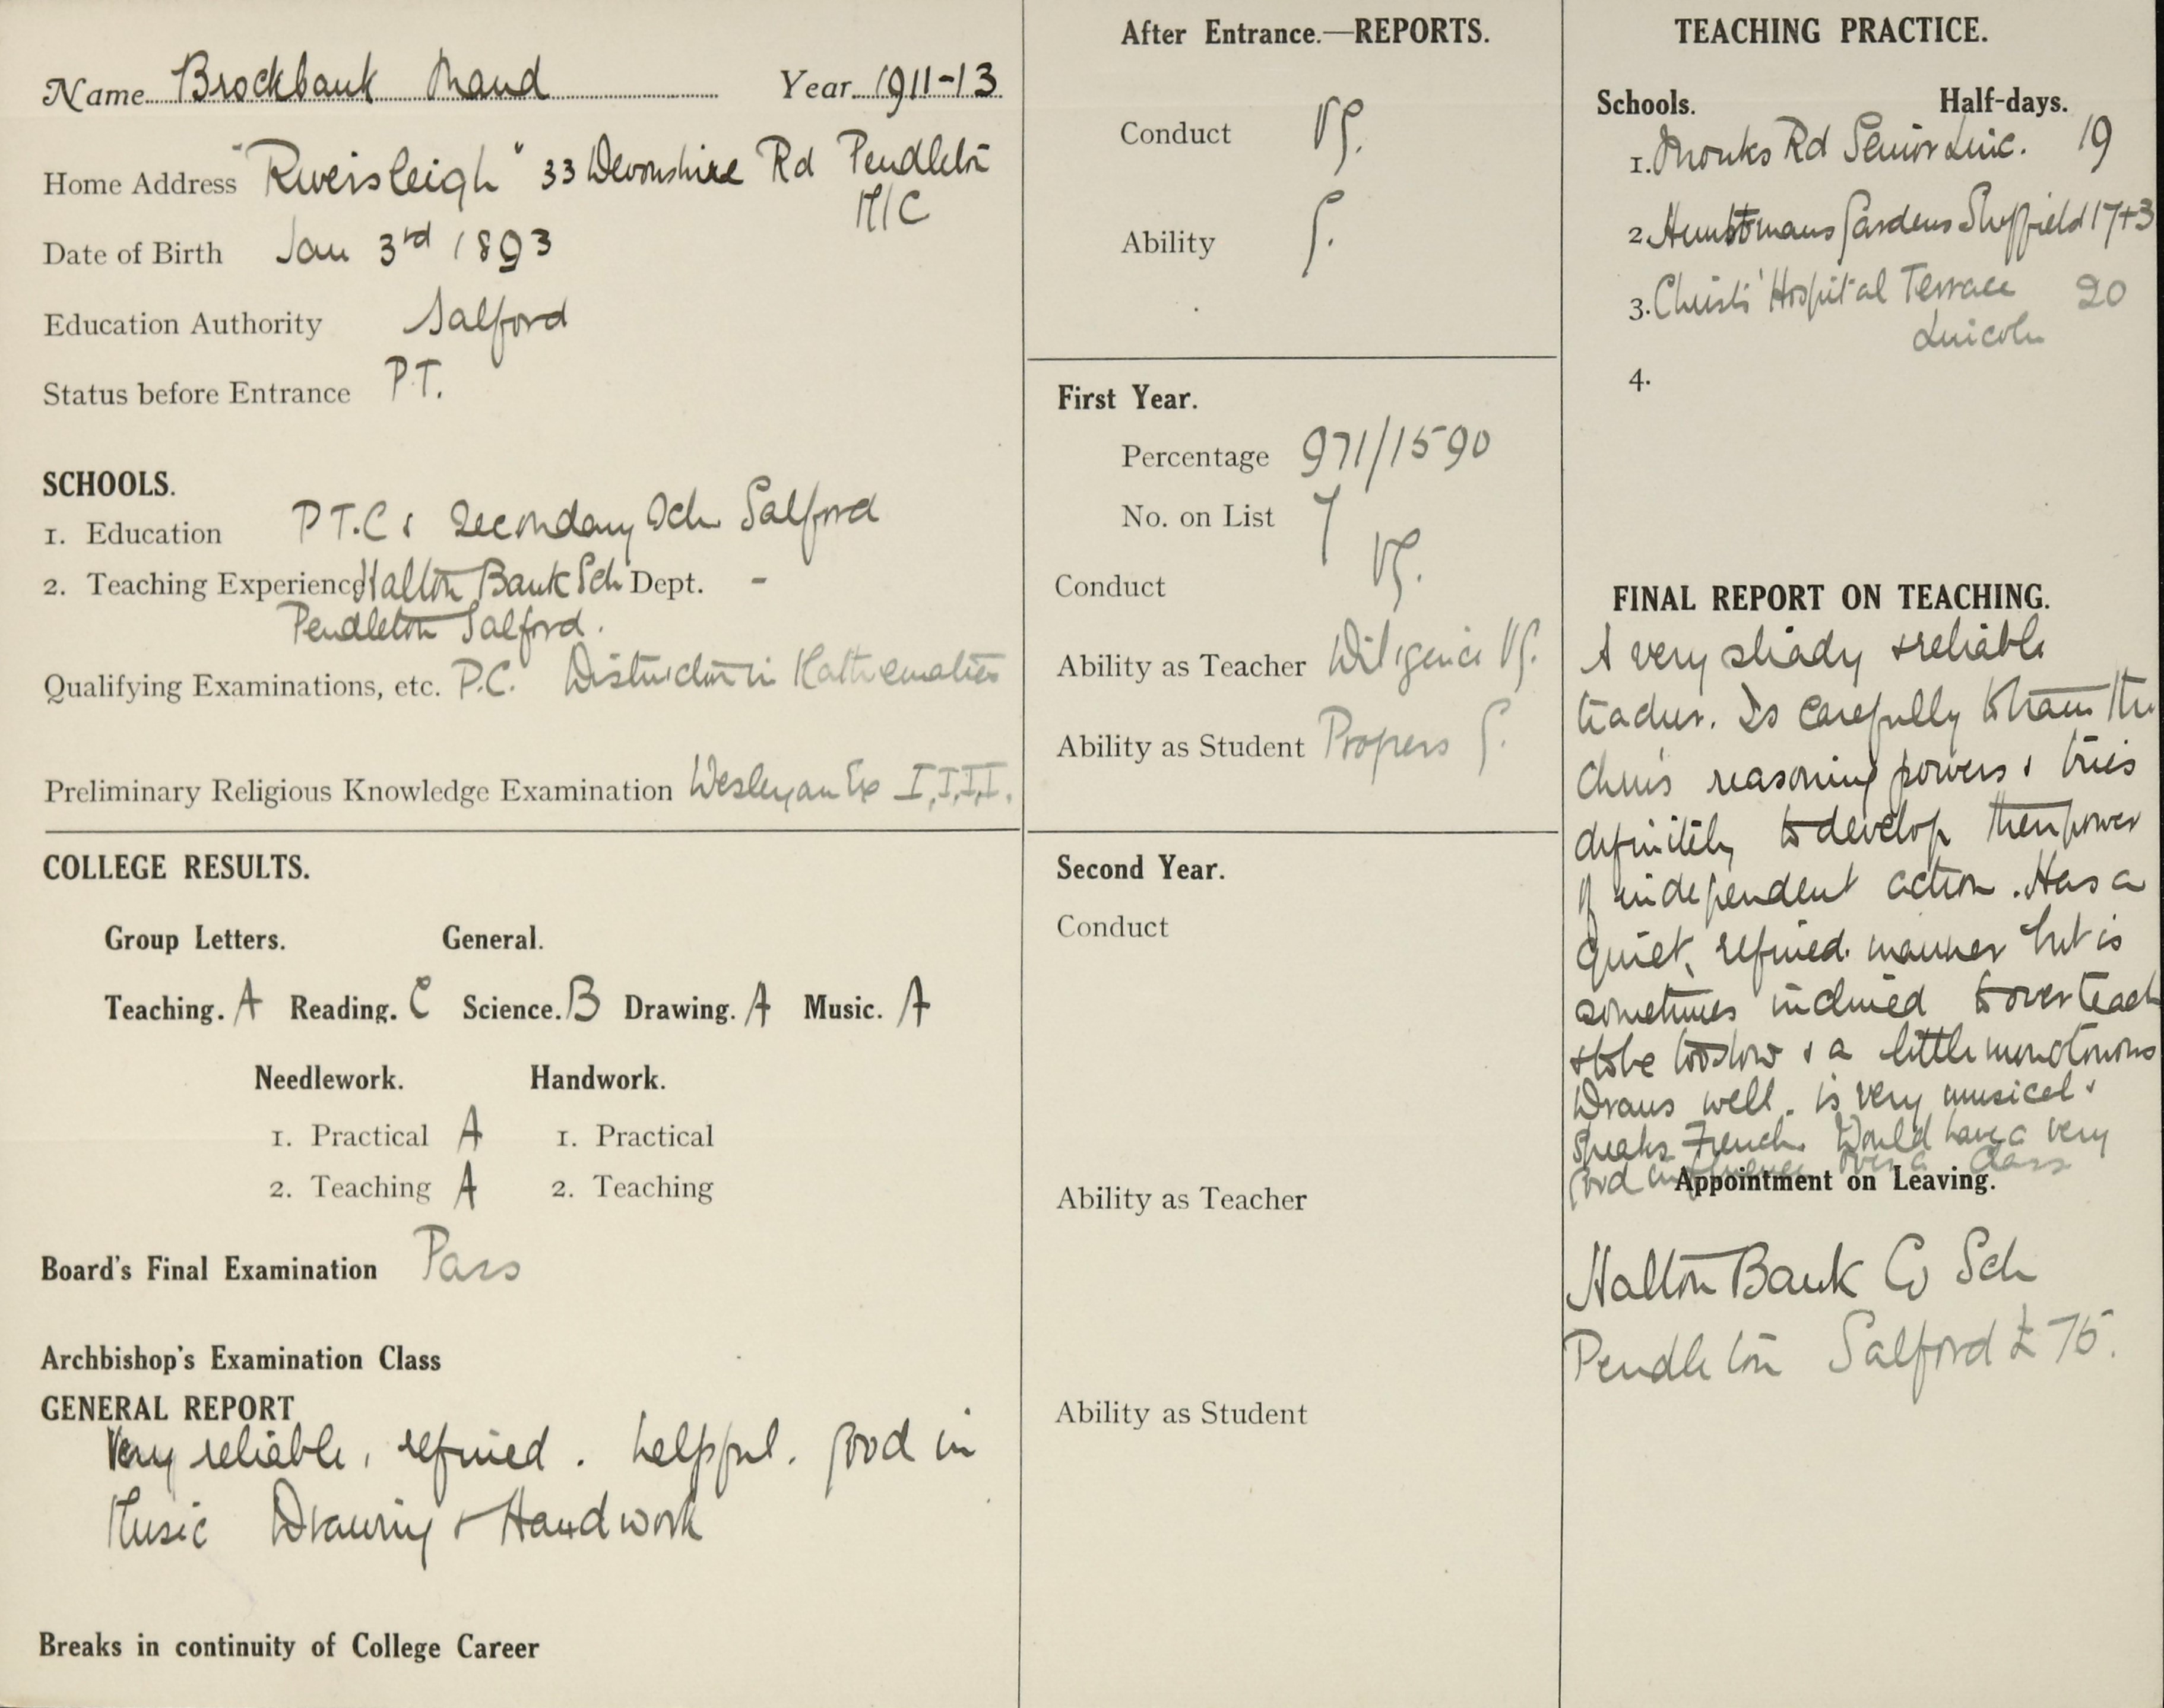 Name Brockbank Maud Year 1911-13
Home Address "Riversleigh" 33 Devonshire Rd Pendleton
M/C
Date of Birth Jan 3rd 1893
Education Authority Salford
Status before Entrance P.T.
SCHOOLS.
1. Education P T.C & Secondary Sch Salford
2. Teaching Experience Halton Bank Sch Dept. -
Pendleton Salford.
Qualifying Examinations, etc. P.C. Distinction in Mathematics
Preliminary Religious Knowledge Examination Wesleyan Ex I, I, II, I.
COLLEGE RESULTS.
Group Letters. General.
Teaching. A Reading. C Science. B Drawing. A Music. A
Needlework. Handwork.
1. Practical A 1. Practical
2. Teaching A 2. Teaching
Board's Final Examination Pass
Archbishop's Examination Class
GENERAL REPORT
Very reliable, refined. helpful. good in
Music Drawing & Handwork
Breaks in continuity of College Career
After Entrance.—REPORTS.
Conduct VG.
Ability G.
First Year.
Percentage 971/1590
No. on List 7
Conduct VG.
Ability as Teacher Diligence VG.
Ability as Student Progress G.
Second Year.
Conduct
Ability as Teacher
Ability as Student
TEACHING PRACTICE.
Schools. Half-days.
1. Monks Rd Senior Linc. 19
2. Huntsmans Gardens Sheffield 17+3
3. Christ's Hospital Terrace 20
Lincoln
4.
FINAL REPORT ON TEACHING.
A very steady & reliable
teacher. Is carefully to train the
chn's reasoning powers & tries
definitely to develop their power
of independent action. Has a
quiet, refined manner but is
sometimes inclined to over teach
& to be too slow & a little monotonous
Draws well. is very musical &
speaks French. Would have a very
good influence over a class
Appointment on Leaving.
Halton Bank Co Sch
Pendleton Salford £75.